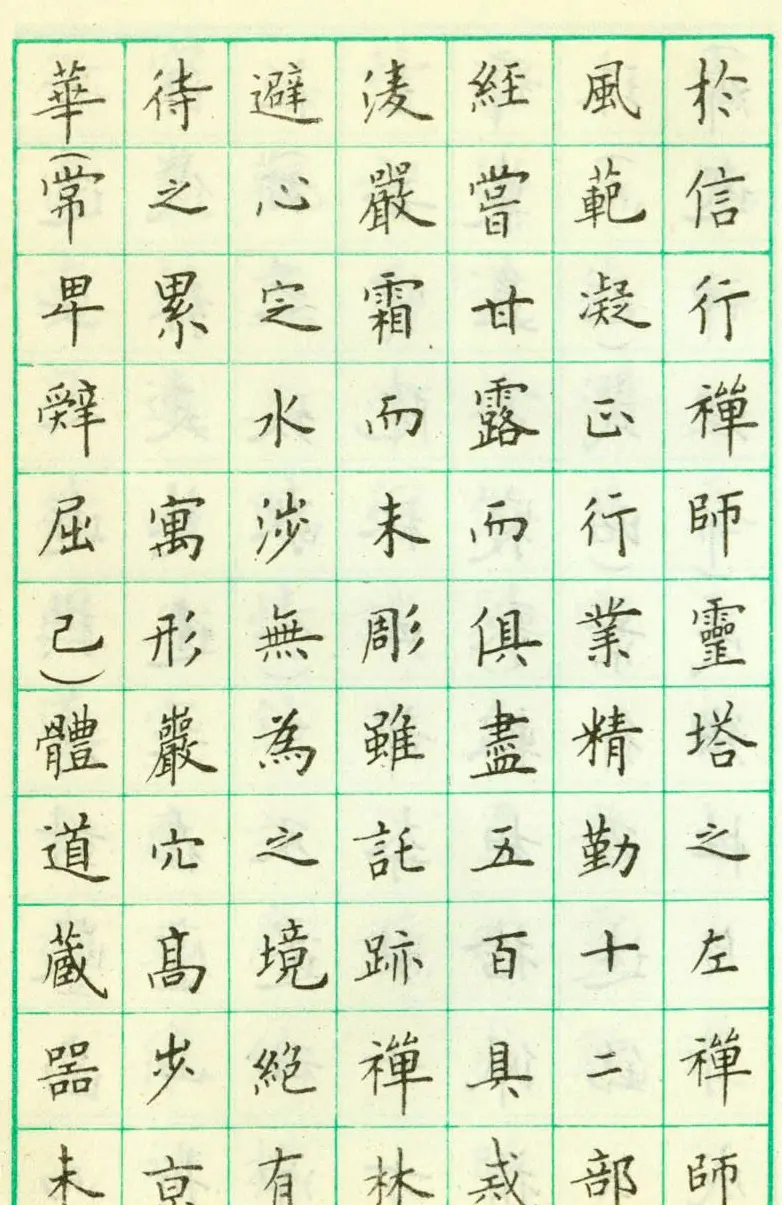 於信行禪師靈塔之左禪師
風範凝正行業精勤十二部
經嘗甘露而俱盡五百具戒
淩嚴霜而未彫雖託跡禪林
避心定水涉無為之境絕有
待之累寓形巖穴高步京
華(常卑辭屈己)體道藏器未